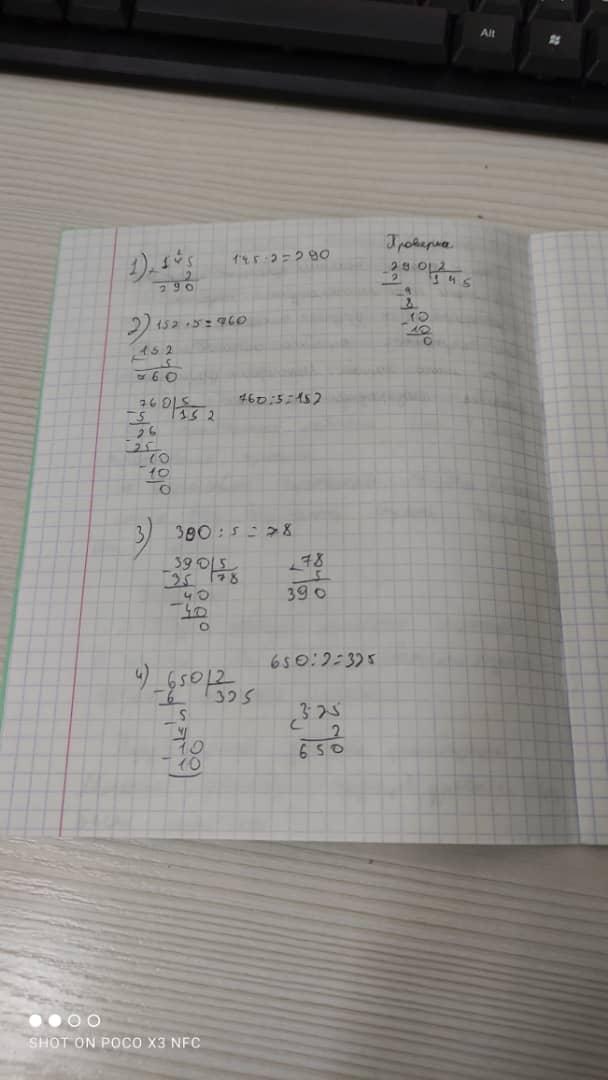 Alt
1) 145 145·2=290
× 2
290
Проверка
- 290|2
2 145
- 9
8
10
- 10
0
2) 152·5=760
152
× 5
760
- 760|5 760:5=152
5 152
- 26
25
- 10
10
0
3) 390:5=78
- 390|5
35 78
- 40
40
0
× 78
5
390
4) 650:2=325
- 650|2
6 325
- 5
4
- 10
10
× 325
2
650
SHOT ON POCO X3 NFC